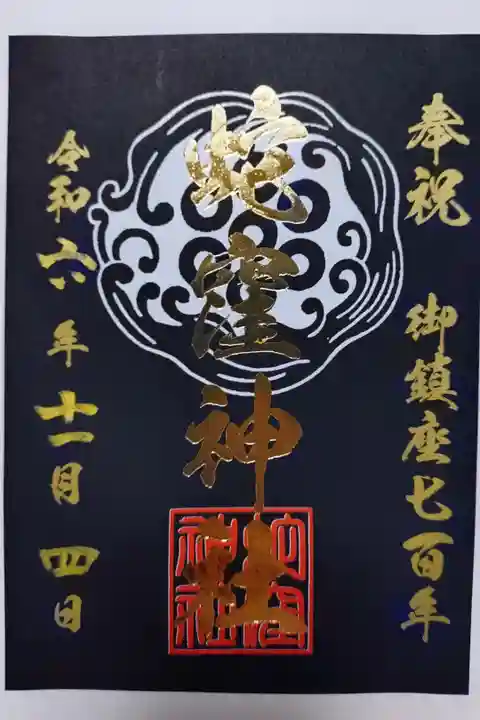 奉祝 御鎮座七百年
蛇窪神社
令和六年十一月四日